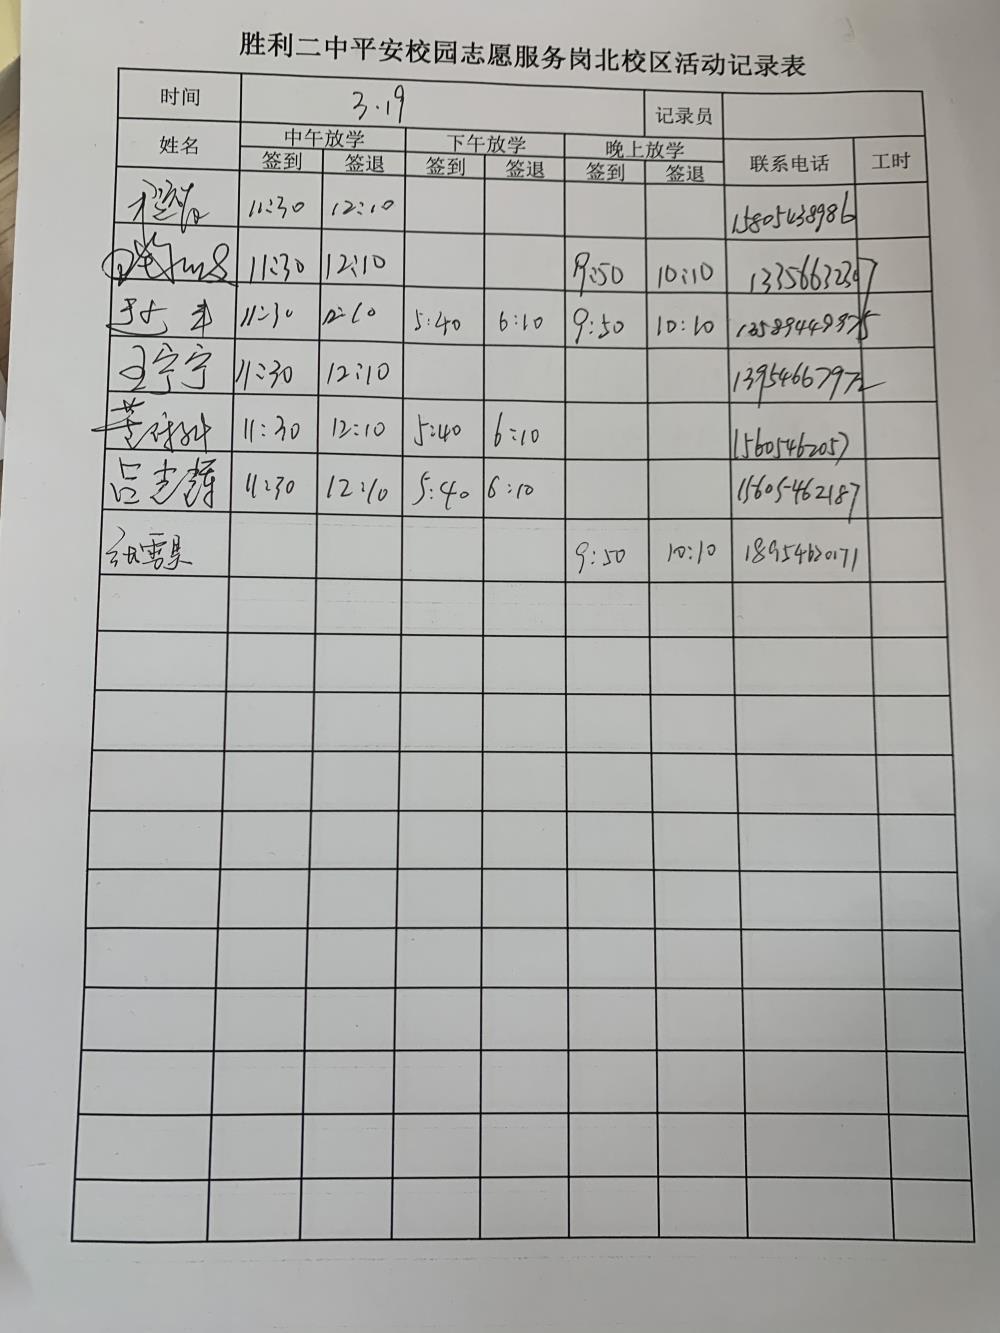 胜利二中平安校园志愿服务岗北校区活动记录表
时间 3.19 记录员
姓名 中午放学 下午放学 晚上放学 联系电话 工时
签到 签退 签到 签退 签到 签退
11:30 12:10 15805438986
11:30 12:10 9:50 10:10 13356632347
11:30 12:10 5:40 6:10 9:50 10:10 13589449375
王宁宁 11:30 12:10 13954667972
11:30 12:10 5:40 6:10 15605462057
吕志辉 11:30 12:10 5:40 6:10 15605462187
9:50 10:10 18954620171